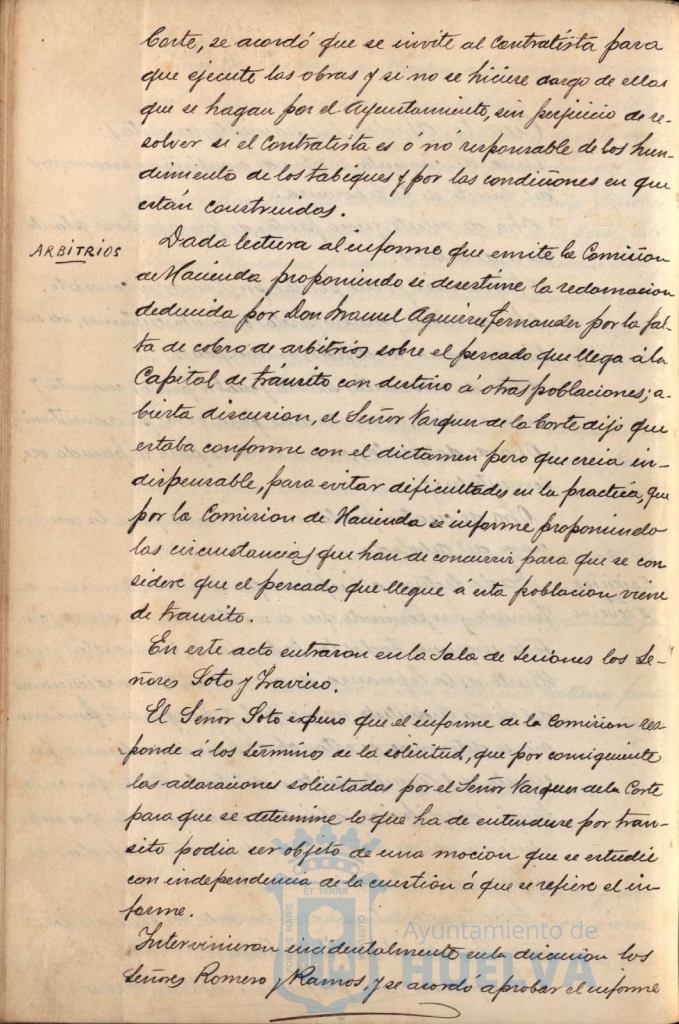 Corte, se acordó que se invite al Contratista para
que ejecute las obras y si no se hiciere cargo de ellas
que se hagan por el Ayuntamiento, sin perjuicio de re-
solver si el Contratista es ó nó responsable de los hun-
dimiento de los tabiques y por las condiciones en que
están construidos.
ARBITRIOS
Dada lectura al informe que emite la Comision
de Hacienda proponiendo se desestime la reclamacion
deducida por Don Manuel Aguirre Fernandez por la fal-
ta de cobro de arbitrios sobre el pescado que llega á la
Capital de tránsito con destino á otras poblaciones; a-
bierta discusion, el Señor Vazquez de la Corte dijo que
estaba conforme con el dictamen pero que creia in-
dispensable, para evitar dificultades en la practica, que
por la Comision de Hacienda se informe proponiendo
las circustancias que han de concurrir para que se con
sidere que el pescado que llegue á esta poblacion viene
de transito.
En este acto entraron en la Sala de Sesiones los Se-
ñores Soto y Travieso.
El Señor Soto expuso que el informe de la Comision res-
ponde á los terminos de la solicitud, que por consiguiente
las aclaraciones solicitadas por el Señor Vazquez de la Corte
para que se determine lo que ha de entenderse por tran-
sito podia ser objeto de una mocion que se estudie
con independencia de la cuestion á que se refiere el in-
forme.
Intervinieron incidentalmente en la discusion los
Señores Romero y Ramos, y se acordó aprobar el informe
ET TERRA
Ayuntamiento de
HUELVA